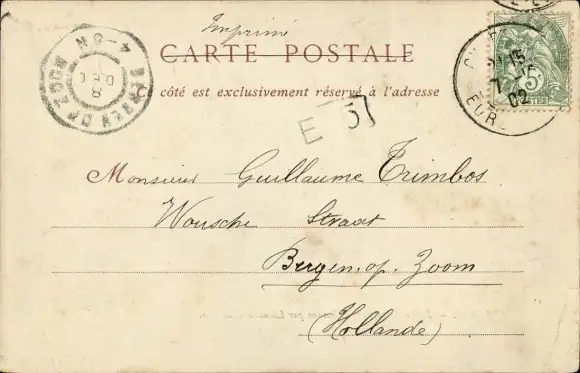 Imprimé
CARTE POSTALE
Ce côté est exclusivement réservé à l'adresse
BERGEN OP ZOOM
4-8N
8
DEC
E 5
15
7
02
EURE
5
Monsieur Guillaume Trimbos
Wousche Straat
Bergen. op. Zoom
(Hollande)